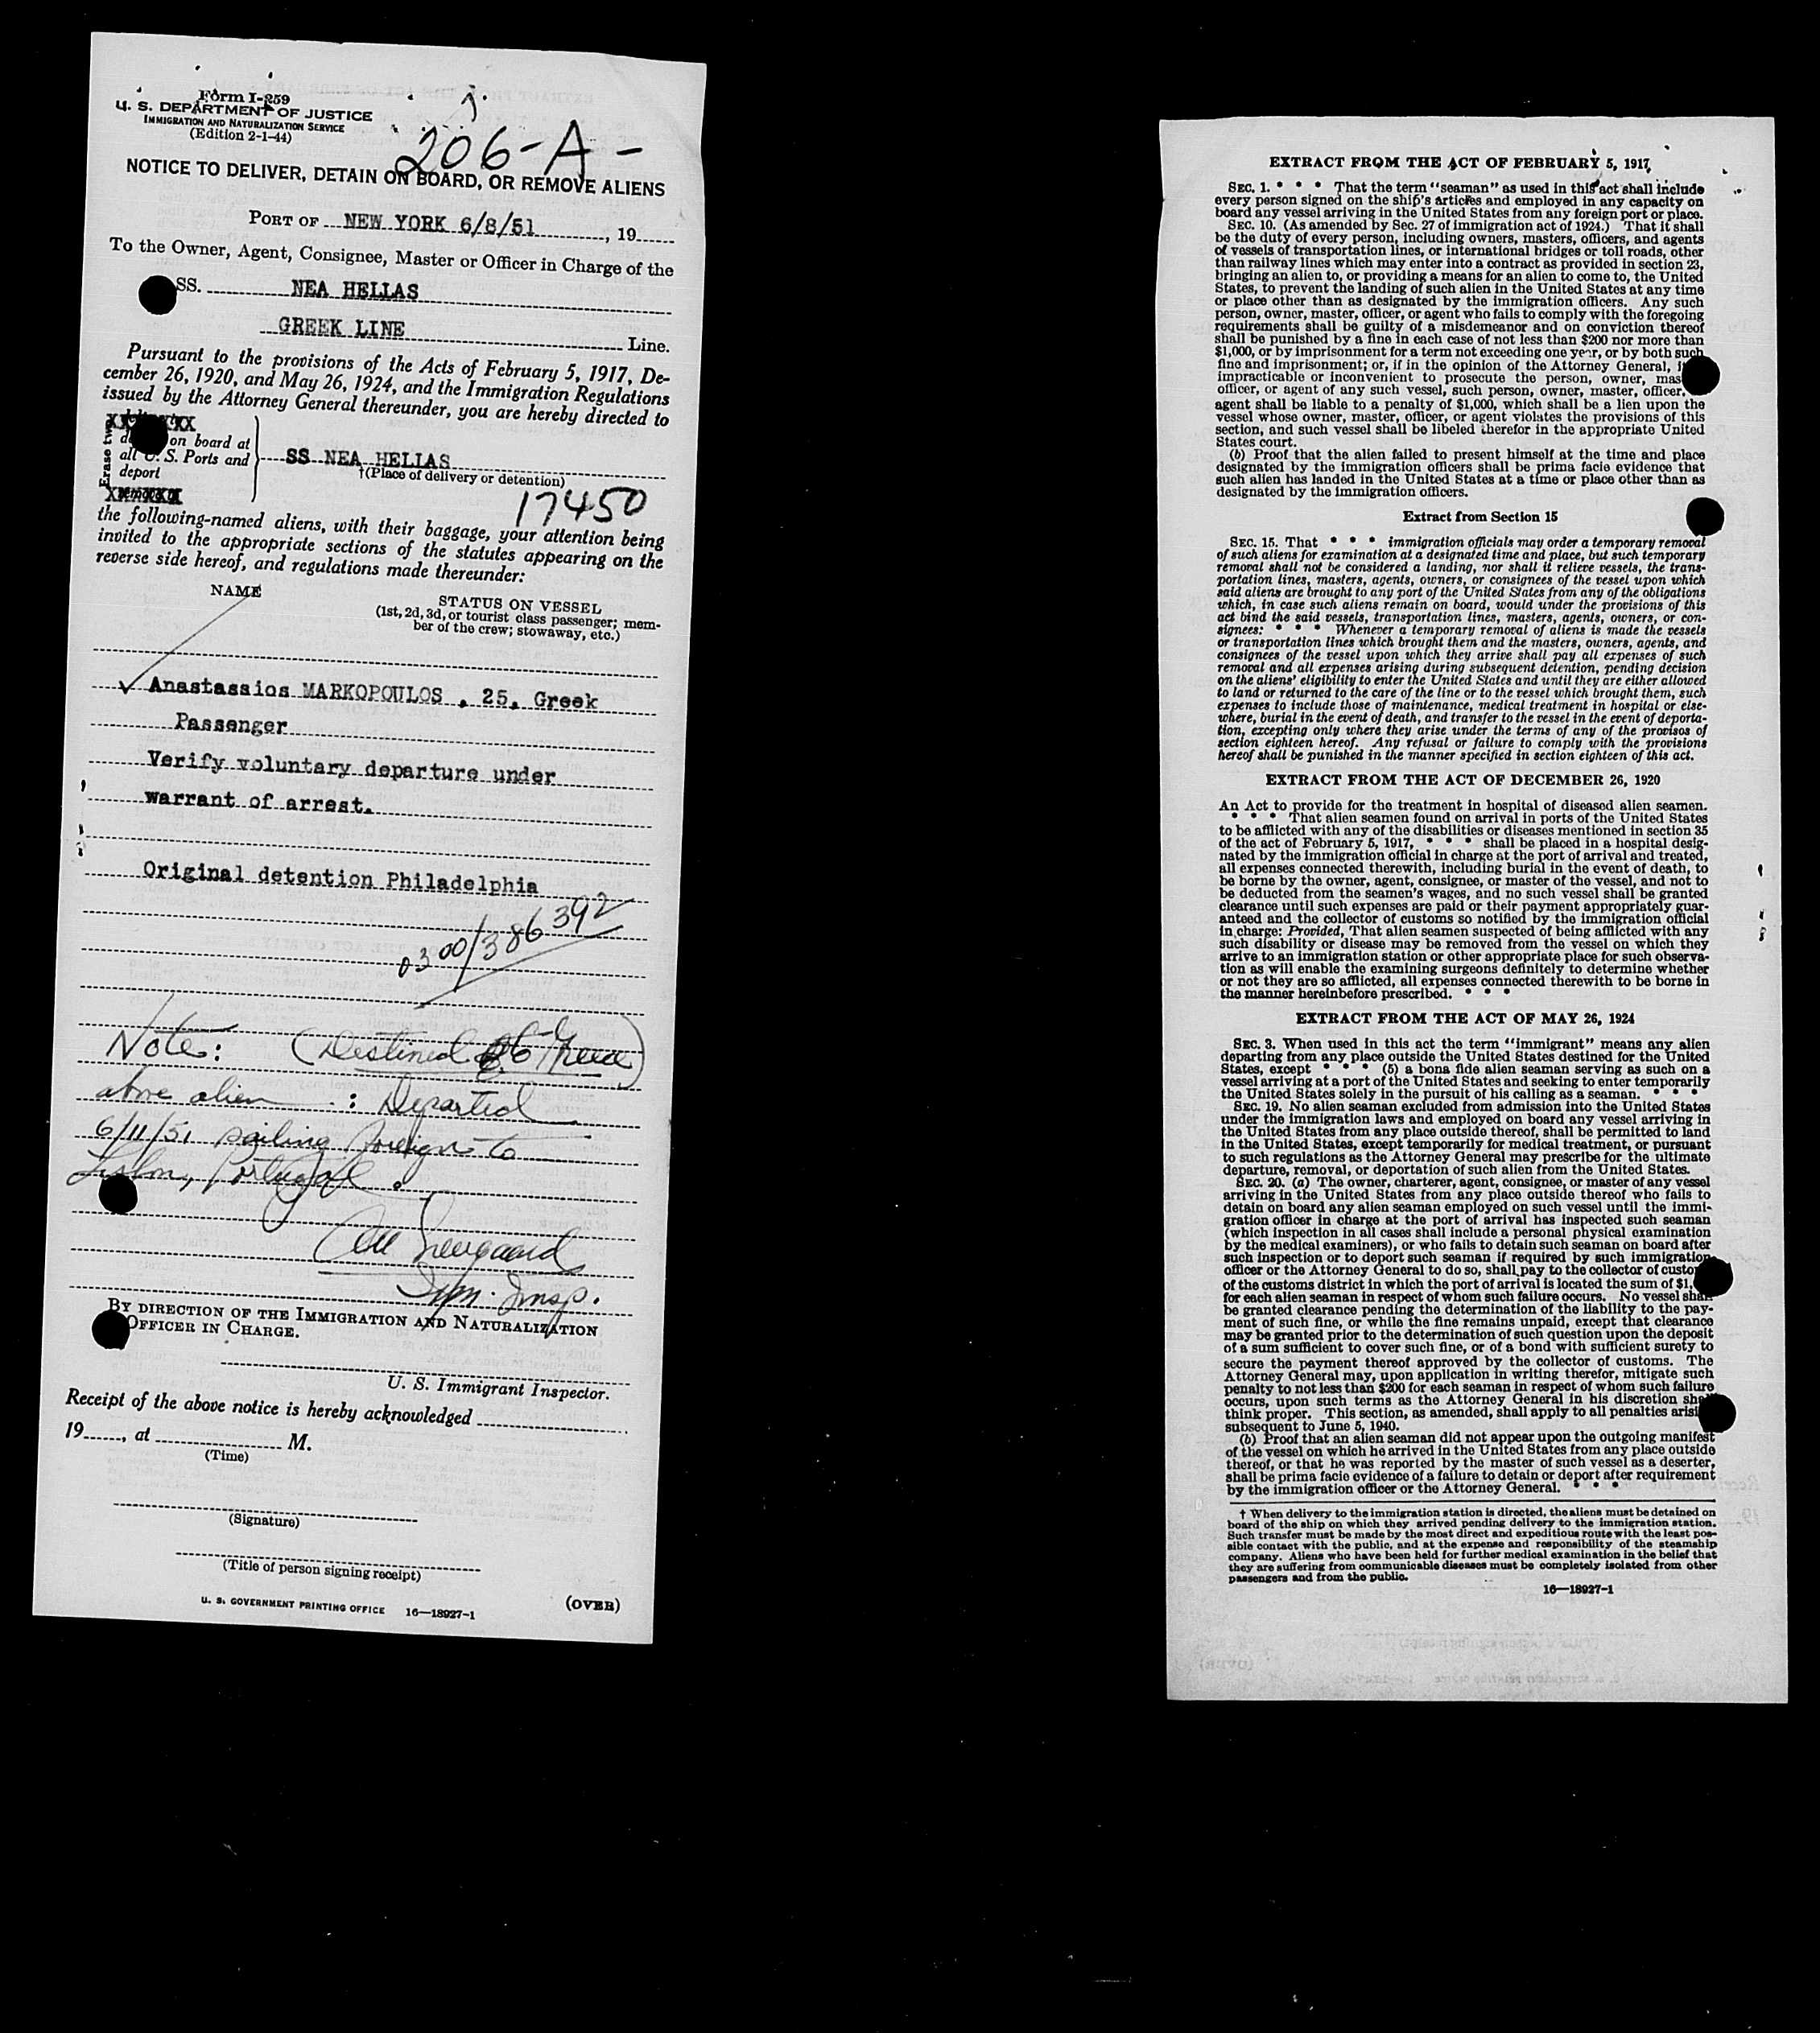 Form I-259
U. S. DEPARTMENT OF JUSTICE
IMMIGRATION AND NATURALIZATION SERVICE
(Edition 2-1-44)
206-A-
NOTICE TO DELIVER, DETAIN ON BOARD, OR REMOVE ALIENS
PORT OF NEW YORK 6/8/51, 19
To the Owner, Agent, Consignee, Master or Officer in Charge of the
SS. NEA HELLAS
GREEK LINE Line.
Pursuant to the provisions of the Acts of February 5, 1917, De-
cember 26, 1920, and May 26, 1924, and the Immigration Regulations
issued by the Attorney General thereunder, you are hereby directed to
on board at
all U. S. Ports and
deport
SS NEA HELLAS
†(Place of delivery or detention)
17450
the following-named aliens, with their baggage, your attention being
invited to the appropriate sections of the statutes appearing on the
reverse side hereof, and regulations made thereunder:
NAME
STATUS ON VESSEL
(1st, 2d, 3d, or tourist class passenger; mem-
ber of the crew; stowaway, etc.)
Anastassios MARKOPOULOS , 25, Greek
Passenger
Verify voluntary departure under
warrant of arrest.
Original detention Philadelphia
0300/386392
Note: (Destined to Greece)
above alien : Departed
6/11/51 sailing foreign to
Lisbon, Portugal.
Imm. Insp.
BY DIRECTION OF THE IMMIGRATION AND NATURALIZATION
OFFICER IN CHARGE.
U. S. Immigrant Inspector.
Receipt of the above notice is hereby acknowledged
19, at M.
(Time)
(Signature)
(Title of person signing receipt)
U. S. GOVERNMENT PRINTING OFFICE 16—18927-1 (OVER)
EXTRACT FROM THE ACT OF FEBRUARY 5, 1917
SEC. 1. * * * That the term "seaman" as used in this act shall include
every person signed on the ship's articles and employed in any capacity on
board any vessel arriving in the United States from any foreign port or place.
SEC. 10. (As amended by Sec. 27 of immigration act of 1924.) That it shall
be the duty of every person, including owners, masters, officers, and agents
of vessels of transportation lines, or international bridges or toll roads, other
than railway lines which may enter into a contract as provided in section 23,
bringing an alien to, or providing a means for an alien to come to, the United
States, to prevent the landing of such alien in the United States at any time
or place other than as designated by the immigration officers. Any such
person, owner, master, officer, or agent who fails to comply with the foregoing
requirements shall be guilty of a misdemeanor and on conviction thereof
shall be punished by a fine in each case of not less than $200 nor more than
$1,000, or by imprisonment for a term not exceeding one year, or by both such
fine and imprisonment; or, if in the opinion of the Attorney General, i
impracticable or inconvenient to prosecute the person, owner, mas
officer, or agent of any such vessel, such person, owner, master, officer,
agent shall be liable to a penalty of $1,000, which shall be a lien upon the
vessel whose owner, master, officer, or agent violates the provisions of this
section, and such vessel shall be libeled therefor in the appropriate United
States court.
(b) Proof that the alien failed to present himself at the time and place
designated by the immigration officers shall be prima facie evidence that
such alien has landed in the United States at a time or place other than as
designated by the immigration officers.
Extract from Section 15
SEC. 15. That * * * immigration officials may order a temporary removal
of such aliens for examination at a designated time and place, but such temporary
removal shall not be considered a landing, nor shall it relieve vessels, the trans-
portation lines, masters, agents, owners, or consignees of the vessel upon which
said aliens are brought to any port of the United States from any of the obligations
which, in case such aliens remain on board, would under the provisions of this
act bind the said vessels, transportation lines, masters, agents, owners, or con-
signees: * * * Whenever a temporary removal of aliens is made the vessels
or transportation lines which brought them and the masters, owners, agents, and
consignees of the vessel upon which they arrive shall pay all expenses of such
removal and all expenses arising during subsequent detention, pending decision
on the aliens' eligibility to enter the United States and until they are either allowed
to land or returned to the care of the line or to the vessel which brought them, such
expenses to include those of maintenance, medical treatment in hospital or else-
where, burial in the event of death, and transfer to the vessel in the event of deporta-
tion, excepting only where they arise under the terms of any of the provisos of
section eighteen hereof. Any refusal or failure to comply with the provisions
hereof shall be punished in the manner specified in section eighteen of this act.
EXTRACT FROM THE ACT OF DECEMBER 26, 1920
An Act to provide for the treatment in hospital of diseased alien seamen.
* * * That alien seamen found on arrival in ports of the United States
to be afflicted with any of the disabilities or diseases mentioned in section 35
of the act of February 5, 1917, * * * shall be placed in a hospital desig-
nated by the immigration official in charge at the port of arrival and treated,
all expenses connected therewith, including burial in the event of death, to
be borne by the owner, agent, consignee, or master of the vessel, and not to
be deducted from the seamen's wages, and no such vessel shall be granted
clearance until such expenses are paid or their payment appropriately guar-
anteed and the collector of customs so notified by the immigration official
in charge: Provided, That alien seamen suspected of being afflicted with any
such disability or disease may be removed from the vessel on which they
arrive to an immigration station or other appropriate place for such observa-
tion as will enable the examining surgeons definitely to determine whether
or not they are so afflicted, all expenses connected therewith to be borne in
the manner hereinbefore prescribed. * * *
EXTRACT FROM THE ACT OF MAY 26, 1924
SEC. 3. When used in this act the term "immigrant" means any alien
departing from any place outside the United States destined for the United
States, except * * * (5) a bona fide alien seaman serving as such on a
vessel arriving at a port of the United States and seeking to enter temporarily
the United States solely in the pursuit of his calling as a seaman. * * *
SEC. 19. No alien seaman excluded from admission into the United States
under the immigration laws and employed on board any vessel arriving in
the United States from any place outside thereof, shall be permitted to land
in the United States, except temporarily for medical treatment, or pursuant
to such regulations as the Attorney General may prescribe for the ultimate
departure, removal, or deportation of such alien from the United States.
SEC. 20. (a) The owner, charterer, agent, consignee, or master of any vessel
arriving in the United States from any place outside thereof who fails to
detain on board any alien seaman employed on such vessel until the immi-
gration officer in charge at the port of arrival has inspected such seaman
(which inspection in all cases shall include a personal physical examination
by the medical examiners), or who fails to detain such seaman on board after
such inspection or to deport such seaman if required by such immigration
officer or the Attorney General to do so, shall pay to the collector of custo
of the customs district in which the port of arrival is located the sum of $1,
for each alien seaman in respect of whom such failure occurs. No vessel shall
be granted clearance pending the determination of the liability to the pay-
ment of such fine, or while the fine remains unpaid, except that clearance
may be granted prior to the determination of such question upon the deposit
of a sum sufficient to cover such fine, or of a bond with sufficient surety to
secure the payment thereof approved by the collector of customs. The
Attorney General may, upon application in writing therefor, mitigate such
penalty to not less than $200 for each seaman in respect of whom such failure
occurs, upon such terms as the Attorney General in his discretion sha
think proper. This section, as amended, shall apply to all penalties arisi
subsequent to June 5, 1940.
(b) Proof that an alien seaman did not appear upon the outgoing manifest
of the vessel on which he arrived in the United States from any place outside
thereof, or that he was reported by the master of such vessel as a deserter,
shall be prima facie evidence of a failure to detain or deport after requirement
by the immigration officer or the Attorney General. * * *
† When delivery to the immigration station is directed, the aliens must be detained on
board of the ship on which they arrived pending delivery to the immigration station.
Such transfer must be made by the most direct and expeditious route with the least pos-
sible contact with the public, and at the expense and responsibility of the steamship
company. Aliens who have been held for further medical examination in the belief that
they are suffering from communicable diseases must be completely isolated from other
passengers and from the public.
16—18927-1